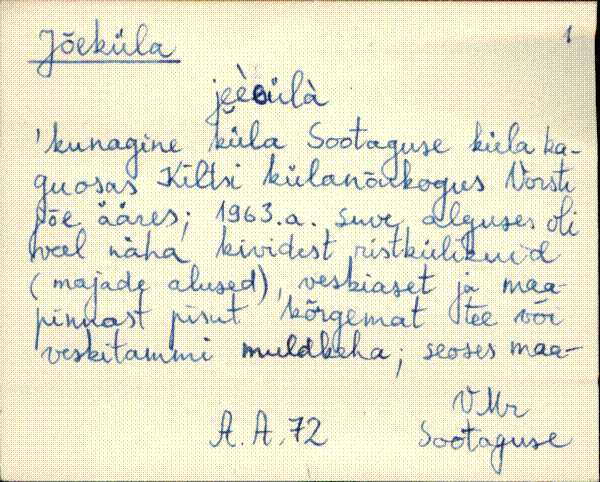 Jõeküla
1
jeèülà
'kunagine küla Sootaguse küla ka-
guosas Kiltsi külanõukogus Vorsti
jõe ääres; 1963.a. suve alguses oli
veel näha kividest ristkülikuid
(majade alused), veskiaset ja maa-
pinnast pisut kõrgemat tee või
veskitammi muldkeha; seoses maa-
VMr
A.A.72 Sootaguse